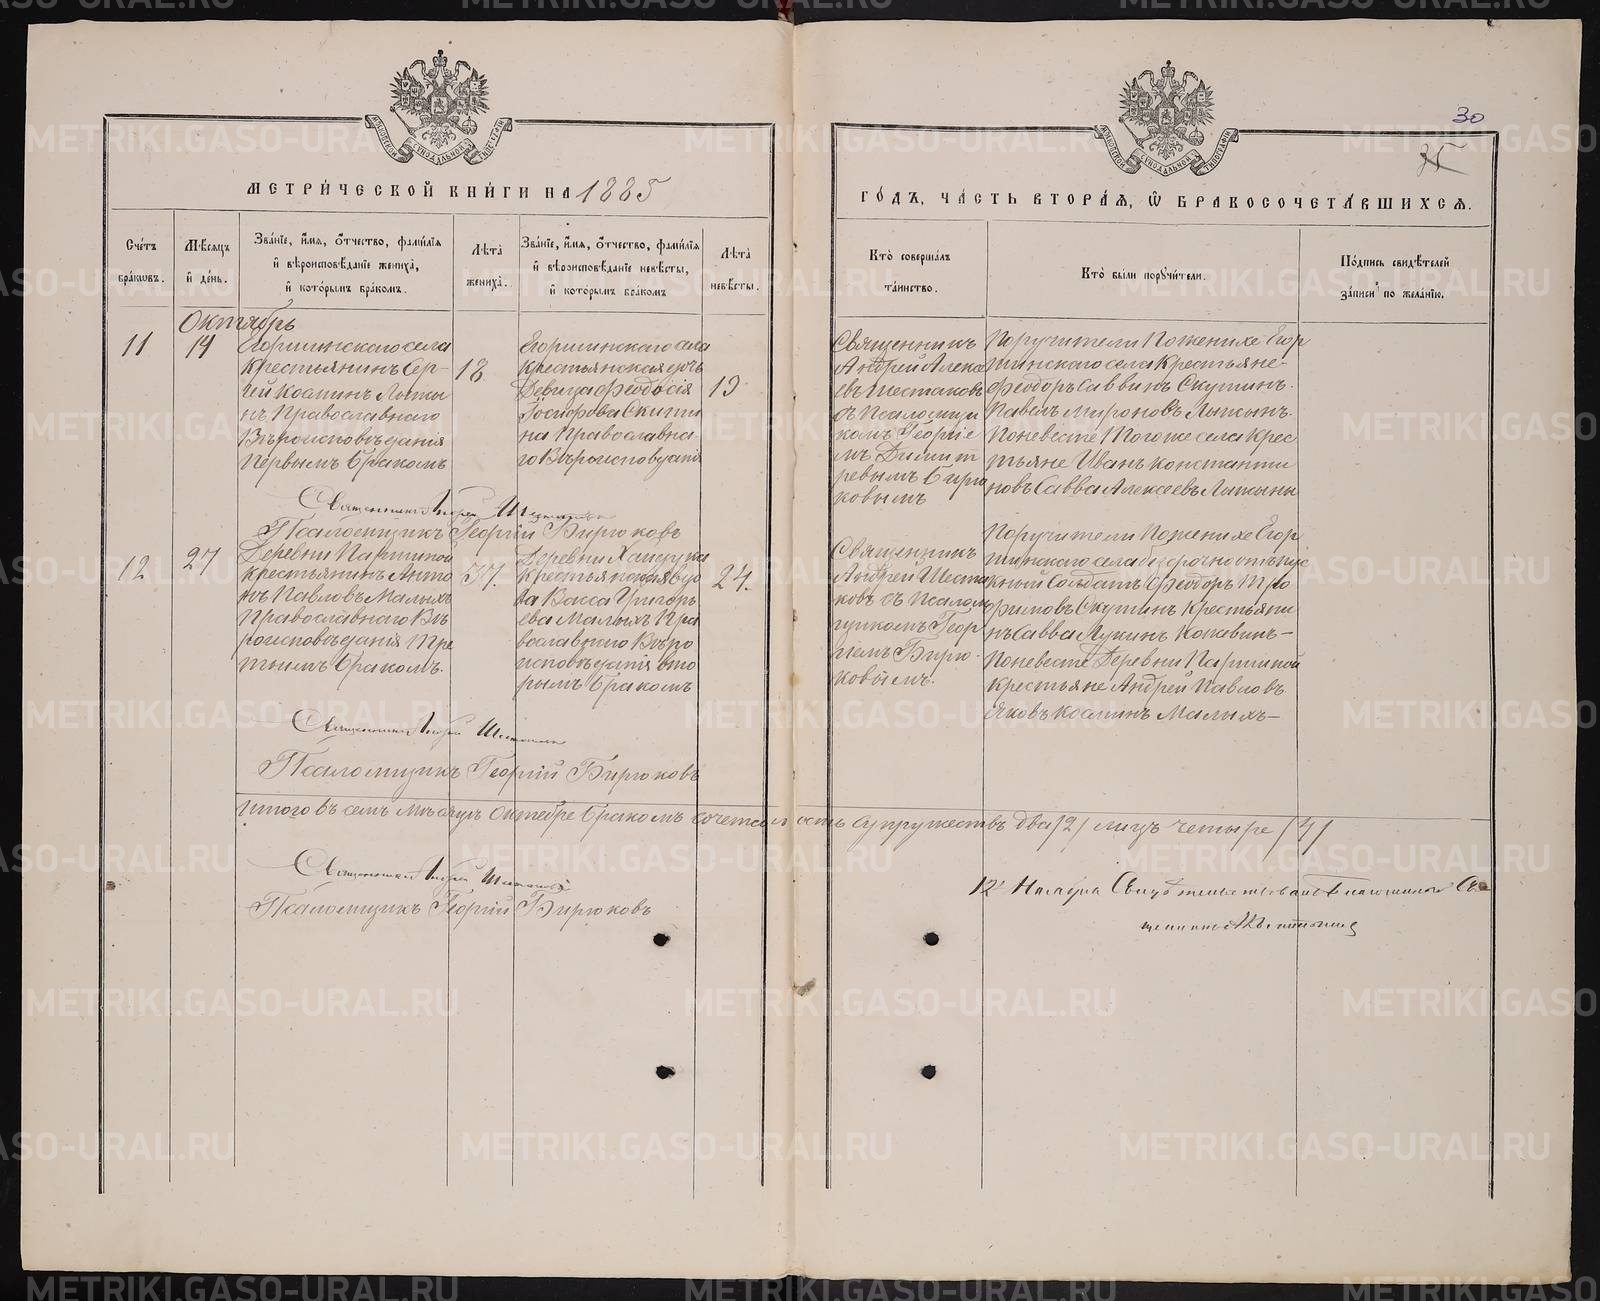 МЕТРИ́ЧЕСКОЙ КНИ́ГИ НА 1885
ГО́ДЪ, ЧА́СТЬ ВТОРА́Я, Ѡ БРАКОСОЧЕТА́ВШИХСЯ.
30
Сче́тъ бра́ковъ.
Мѣ́сяцъ и де́нь.
Зва́нїе, и́мя, ѻ́тчество, фами́лїя и вѣроисповѣ́данїе жениха̀, и кото́рымъ бра́комъ.
Лѣта̀ жениха̀.
Зва́нїе, и́мя, ѻ́тчество, фами́лїя и вѣроисповѣ́данїе невѣ́сты, и кото́рымъ бра́комъ
Лѣта̀ невѣ́сты.
Кто̀ соверша́лъ та́инство.
Кто̀ бы́ли поручи́тели.
По́дпись свидѣ́телей за́писи по жела́нїю.
Октябрь
11
14
Егоршинскаго села
крестьянинъ Сер-
гій Косминъ Лыжи
нъ Православнаго
Вѣроисповѣданія
Первымъ бракомъ
18
Егоршинскаго села
крестьянская дочь
Девица Феодосія
Іосифова Скути
на Православна
го Вѣроисповѣданія
19
Священникъ
Андрей Алексе
евъ Шестаковъ
съ Псаломщи
комъ Георгіе
мъ Димит
ревымъ Бирю
ковымъ
Поручители Поженихе Егор
шинскаго села Крестьяне-
Феодоръ Саввинъ Скутинъ.
Павелъ Мироновъ Лыжинъ.
Поневесте Тогоже села крес
тьяне Иванъ константи
новъ Савва Алексеевъ Лыжины
Священникъ Андрей Шестаковъ
Псаломщикъ Георгій Бирюковъ
12
27
Деревни Паршиной
крестьянинъ Анто
нъ Павловъ Малыхъ
Православнаго Вѣ
роисповѣданія Тре
тьимъ бракомъ.
37.
крестьянская вдо
ва Васса Григорь
ева Малыхъ Пра
вославнаго Вѣро
исповѣданія вто
рымъ бракомъ
24.
Священникъ
Андрей Шеста
ковъ съ Псалом
щикомъ Геор
гіемъ Бирю-
ковымъ.
Поручители Поженихе Егор
шинскаго села безсрочно отпус
кный Солдатъ Феодоръ Тро
фимовъ Скутинъ крестьяни
нъ Савва Лукинъ
Поневесте Деревни Паршиной
крестьяне Андрей Павловъ
Яковъ Косминъ Малыхъ-
Священникъ Андрей Шестаковъ
Псаломщикъ Георгій Бирюковъ
Итого въ семъ мѣсяцѣ Октебре бракомъ сочеталось супружествъ два /2/ лицъ четыре /4/
Священникъ Андрей Шестаковъ
Псаломщикъ Георгій Бирюковъ
12 Ноября Свидѣтельствовалъ Благочинный Свя
щенникъ
METRIKI.GASO-URAL.RU